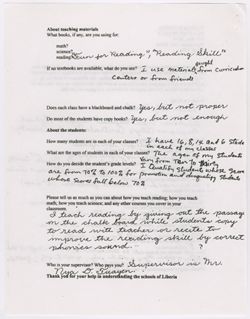 About teaching materials
What books, if any, are you using for:
math?
science?
reading? "Fun for Reading", "Reading Skill"
If no textbooks are available, what do you use? I use materials from curriculum
centers or from friends
Does each class have a blackboard and chalk? Yes, but not proper
Do most of the students have copy books? Yes, but not enough
About the students:
How many students are in each of your classes? I have 16, 8, 14 and 6 students
in each of my classes
What are the ages of students in each of your classes? The ages of my students
from ten to thirty
How do you decide the student's grade levels? I qualify student whose scores
are from 70% to 100% for promotion and disqualify students
whose scores fall below 70%
Please tell us as much as you can about how you teach reading; how you teach
math; how you teach science; and any other courses you cover in your
classroom.
I teach reading by giving out the passage
on the chalk board, ask students copy
to read with teacher or recite to
improve the reading skill by correct
phonics sound. ?
Who is your supervisor? Who pays you? Supervisor is Mr.
D.
Thank you for your help in understanding the schools of Liberia